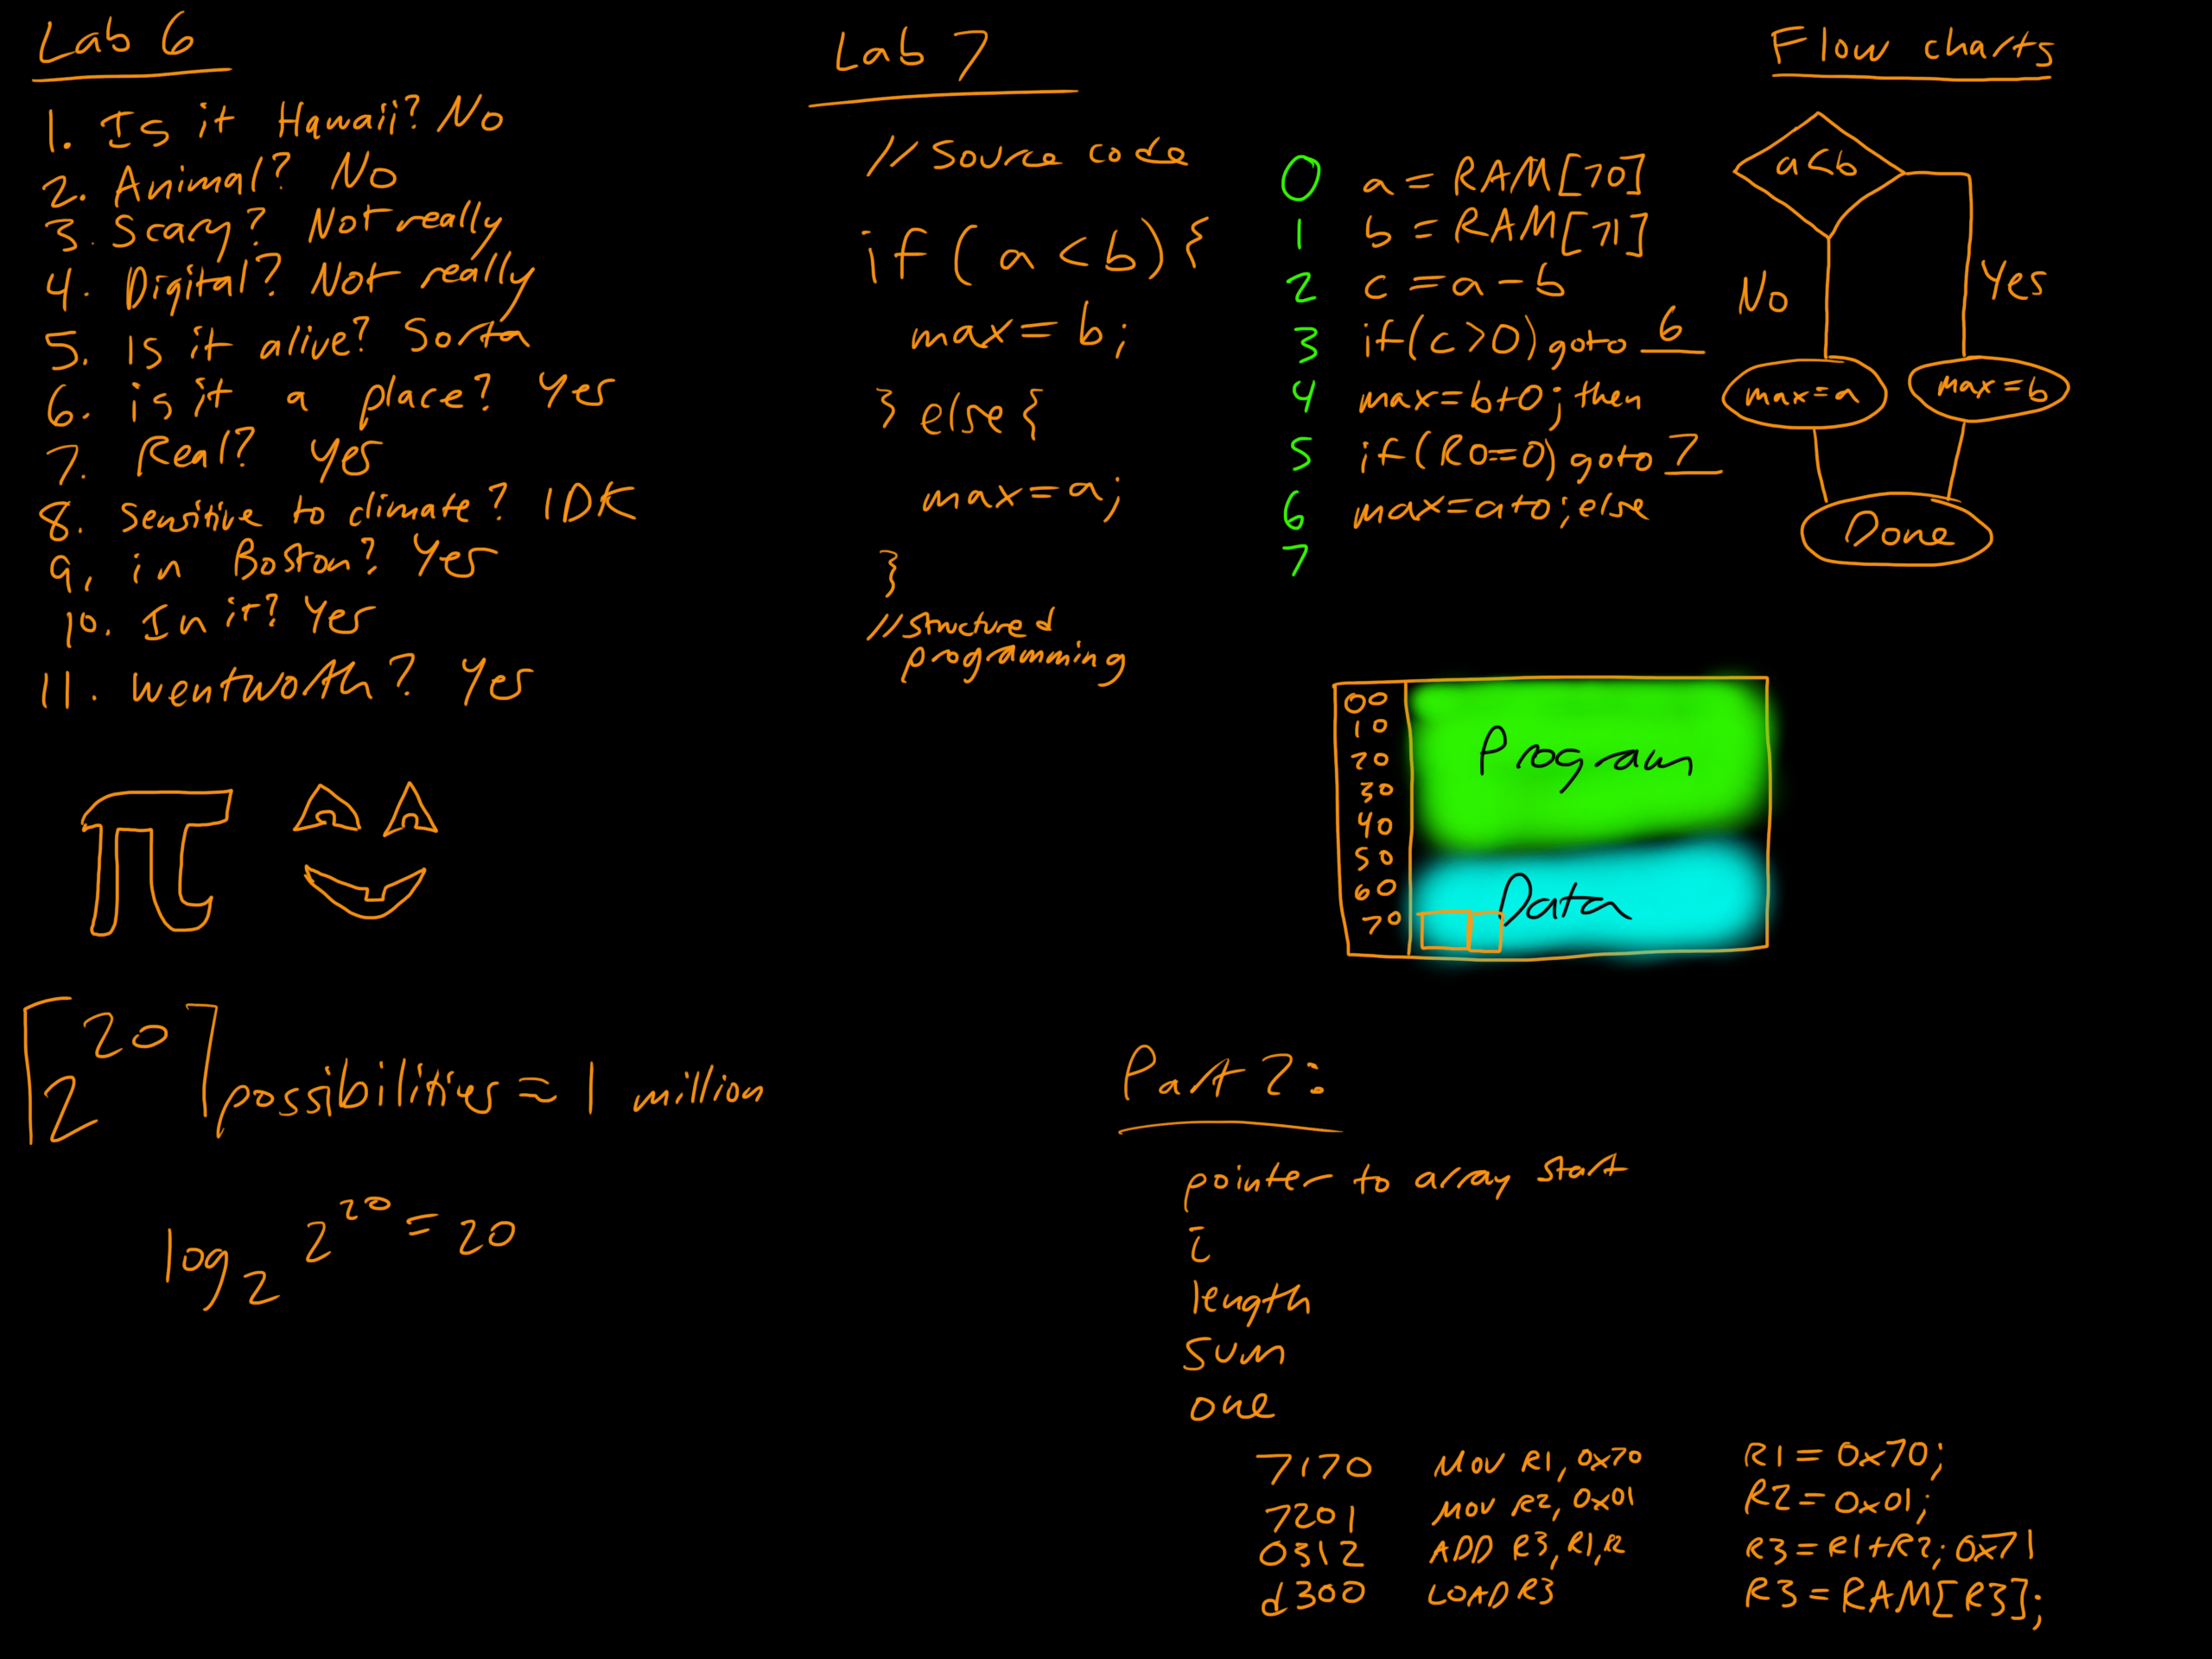 Lab 6
1. Is it Hawaii? No
2. Animal? No
3. Scary? Not really
4. Digital? Not really
5. Is it alive? Sorta
6. is it a place? Yes
7. Real? Yes
8. Sensitive to climate? IDK
9. in Boston? Yes
10. In it? Yes
11. wentworth? Yes
π
2^20 possibilities ≈ 1 million
log_2 2^20 = 20
Lab 7
//Source code
if (a < b) {
max = b;
} else {
max = a;
}
//structured
programming
0 a = RAM[70]
1 b = RAM[71]
2 c = a - b
3 if(c>0) goto 6
4 max=b+0; then
5 if(R0==0) goto 7
6 max=a+0; else
7
Flow charts
a<b
No
Yes
max=a
max=b
Done
00
10
20
30
40
50
60
70
Program
Data
Part 2:
pointer to array start
i
length
sum
one
7170 MOV R1, 0x70 R1 = 0x70;
7201 MOV R2, 0x01 R2 = 0x01;
0312 ADD R3, R1, R2 R3 = R1+R2; 0x71
d300 LOAD R3 R3 = RAM[R3];